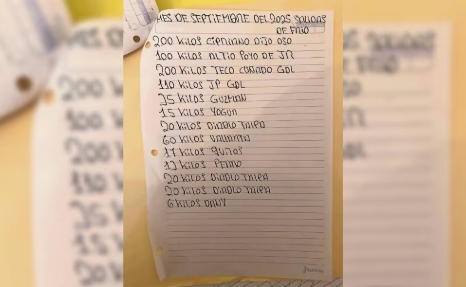 MES DE SEPTIEMBRE DEL 2025 SALIDAS
DE FRIO
200 KILOS CIPRIANO OJO OSO
100 KILOS AL TIO POYO DE JR
200 KILOS TECO CURADO GDL
110 KILOS JP GDL
35 KILOS GUZMAN
15 KILOS YOGUR
20 KILOS DIABLO TRIPA
60 KILOS
17 KILOS
12 KILOS PERRO
20 KILOS DIABLO TRIPA
20 KILOS DIABLO TRIPA
6 KILOS DANY